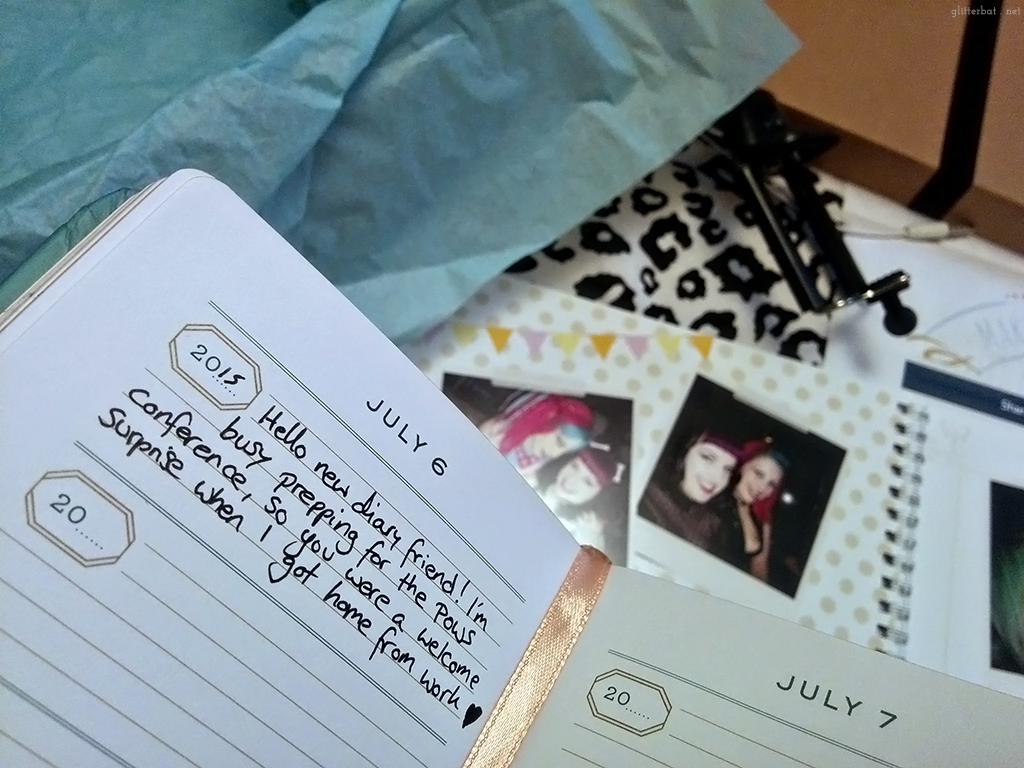 glitterbat . net
JULY 6
2015
Hello new diary friend! I'm
busy prepping for the POWS
conference, so you were a welcome
surprise when I got home from work ♥
20......
JULY 7
20......
MAK
Sha